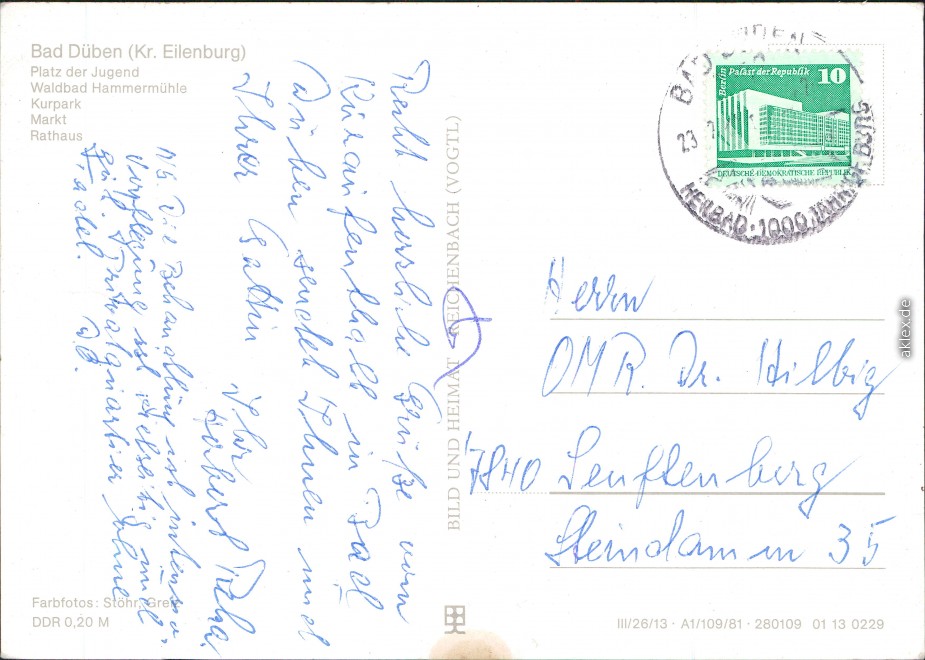 Bad Düben (Kr. Eilenburg)
Platz der Jugend
Waldbad Hammermühle
Kurpark
Markt
Rathaus
Recht herzliche Grüße vom
Kuraufenthalt in Bad
Düben sendet Ihnen und
Ihrer Gattin Ihr
Herbert
NB. Die Behandlung ist intensiv.
Verpflegung ist vielseitig und
gut, Privatquartier ohne
Tadel. D.O.
BILD UND HEIMAT REICHENBACH (VOGTL)
Berlin Palast der Republik 10
DEUTSCHE DEMOKRATISCHE REPUBLIK
BAD DÜBEN
23
HEILBAD · 1000 JAHRIGE BURG
Herrn
OMR. Dr. Hilbig
7840 Senftenberg
Steindamm 35
Farbfotos: Stöhr, Greiz
DDR 0,20 M
III/26/13 · A1/109/81 · 280109 01 13 0229
aklex.de